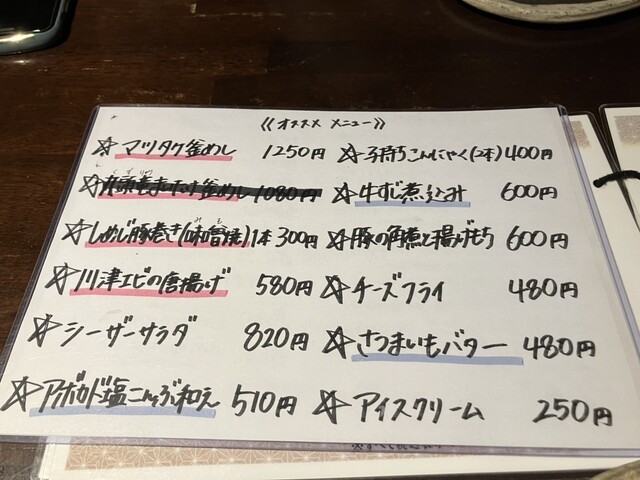 《オススメ メニュー》
☆マツタケ釜めし 1250円
釜めし 1080円
☆しめじ豚巻き(味噌焼)1本300円
☆川津エビの唐揚げ 580円
☆シーザーサラダ 820円
☆アボカド塩こんぶ和え 510円
☆子持ちこんにゃく(2本)400円
☆牛すじ煮込み 600円
☆豚の角煮と揚げもち 600円
☆チーズフライ 480円
☆さつまいもバター 480円
☆アイスクリーム 250円